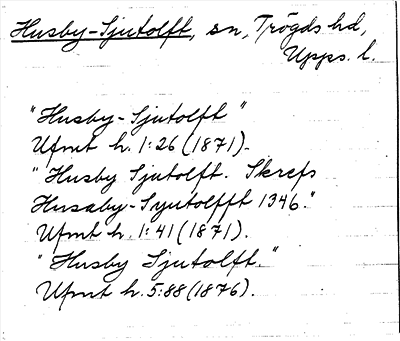 Husby-Sjutolft, sn, Trögds hd,
Upps. l.
"Husby-Sjutolft"
Ufmt h. 1:26 (1871).
"Husby Sjutolft. Skrefs
Husaby-Syutolfft 1346."
Ufmt h. 1:41 (1871).
"Husby Sjutolft."
Ufmt h. 5:88 (1876).